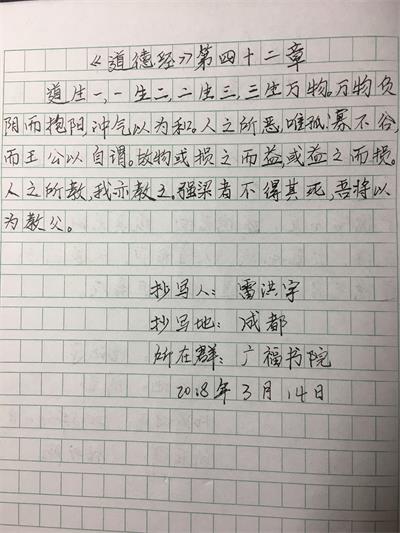 《道德经》第四十二章
道生一,一生二,二生三,三生万物。万物负
阴而抱阳,冲气以为和。人之所恶,唯孤寡不谷,
而王公以自谓。故物或损之而益,或益之而损。
人之所教,我亦教之。强梁者不得其死,吾将以
为教父。
抄写人:雷洪宇
抄写地:成都
所在群:广福书院
2018年3月14日